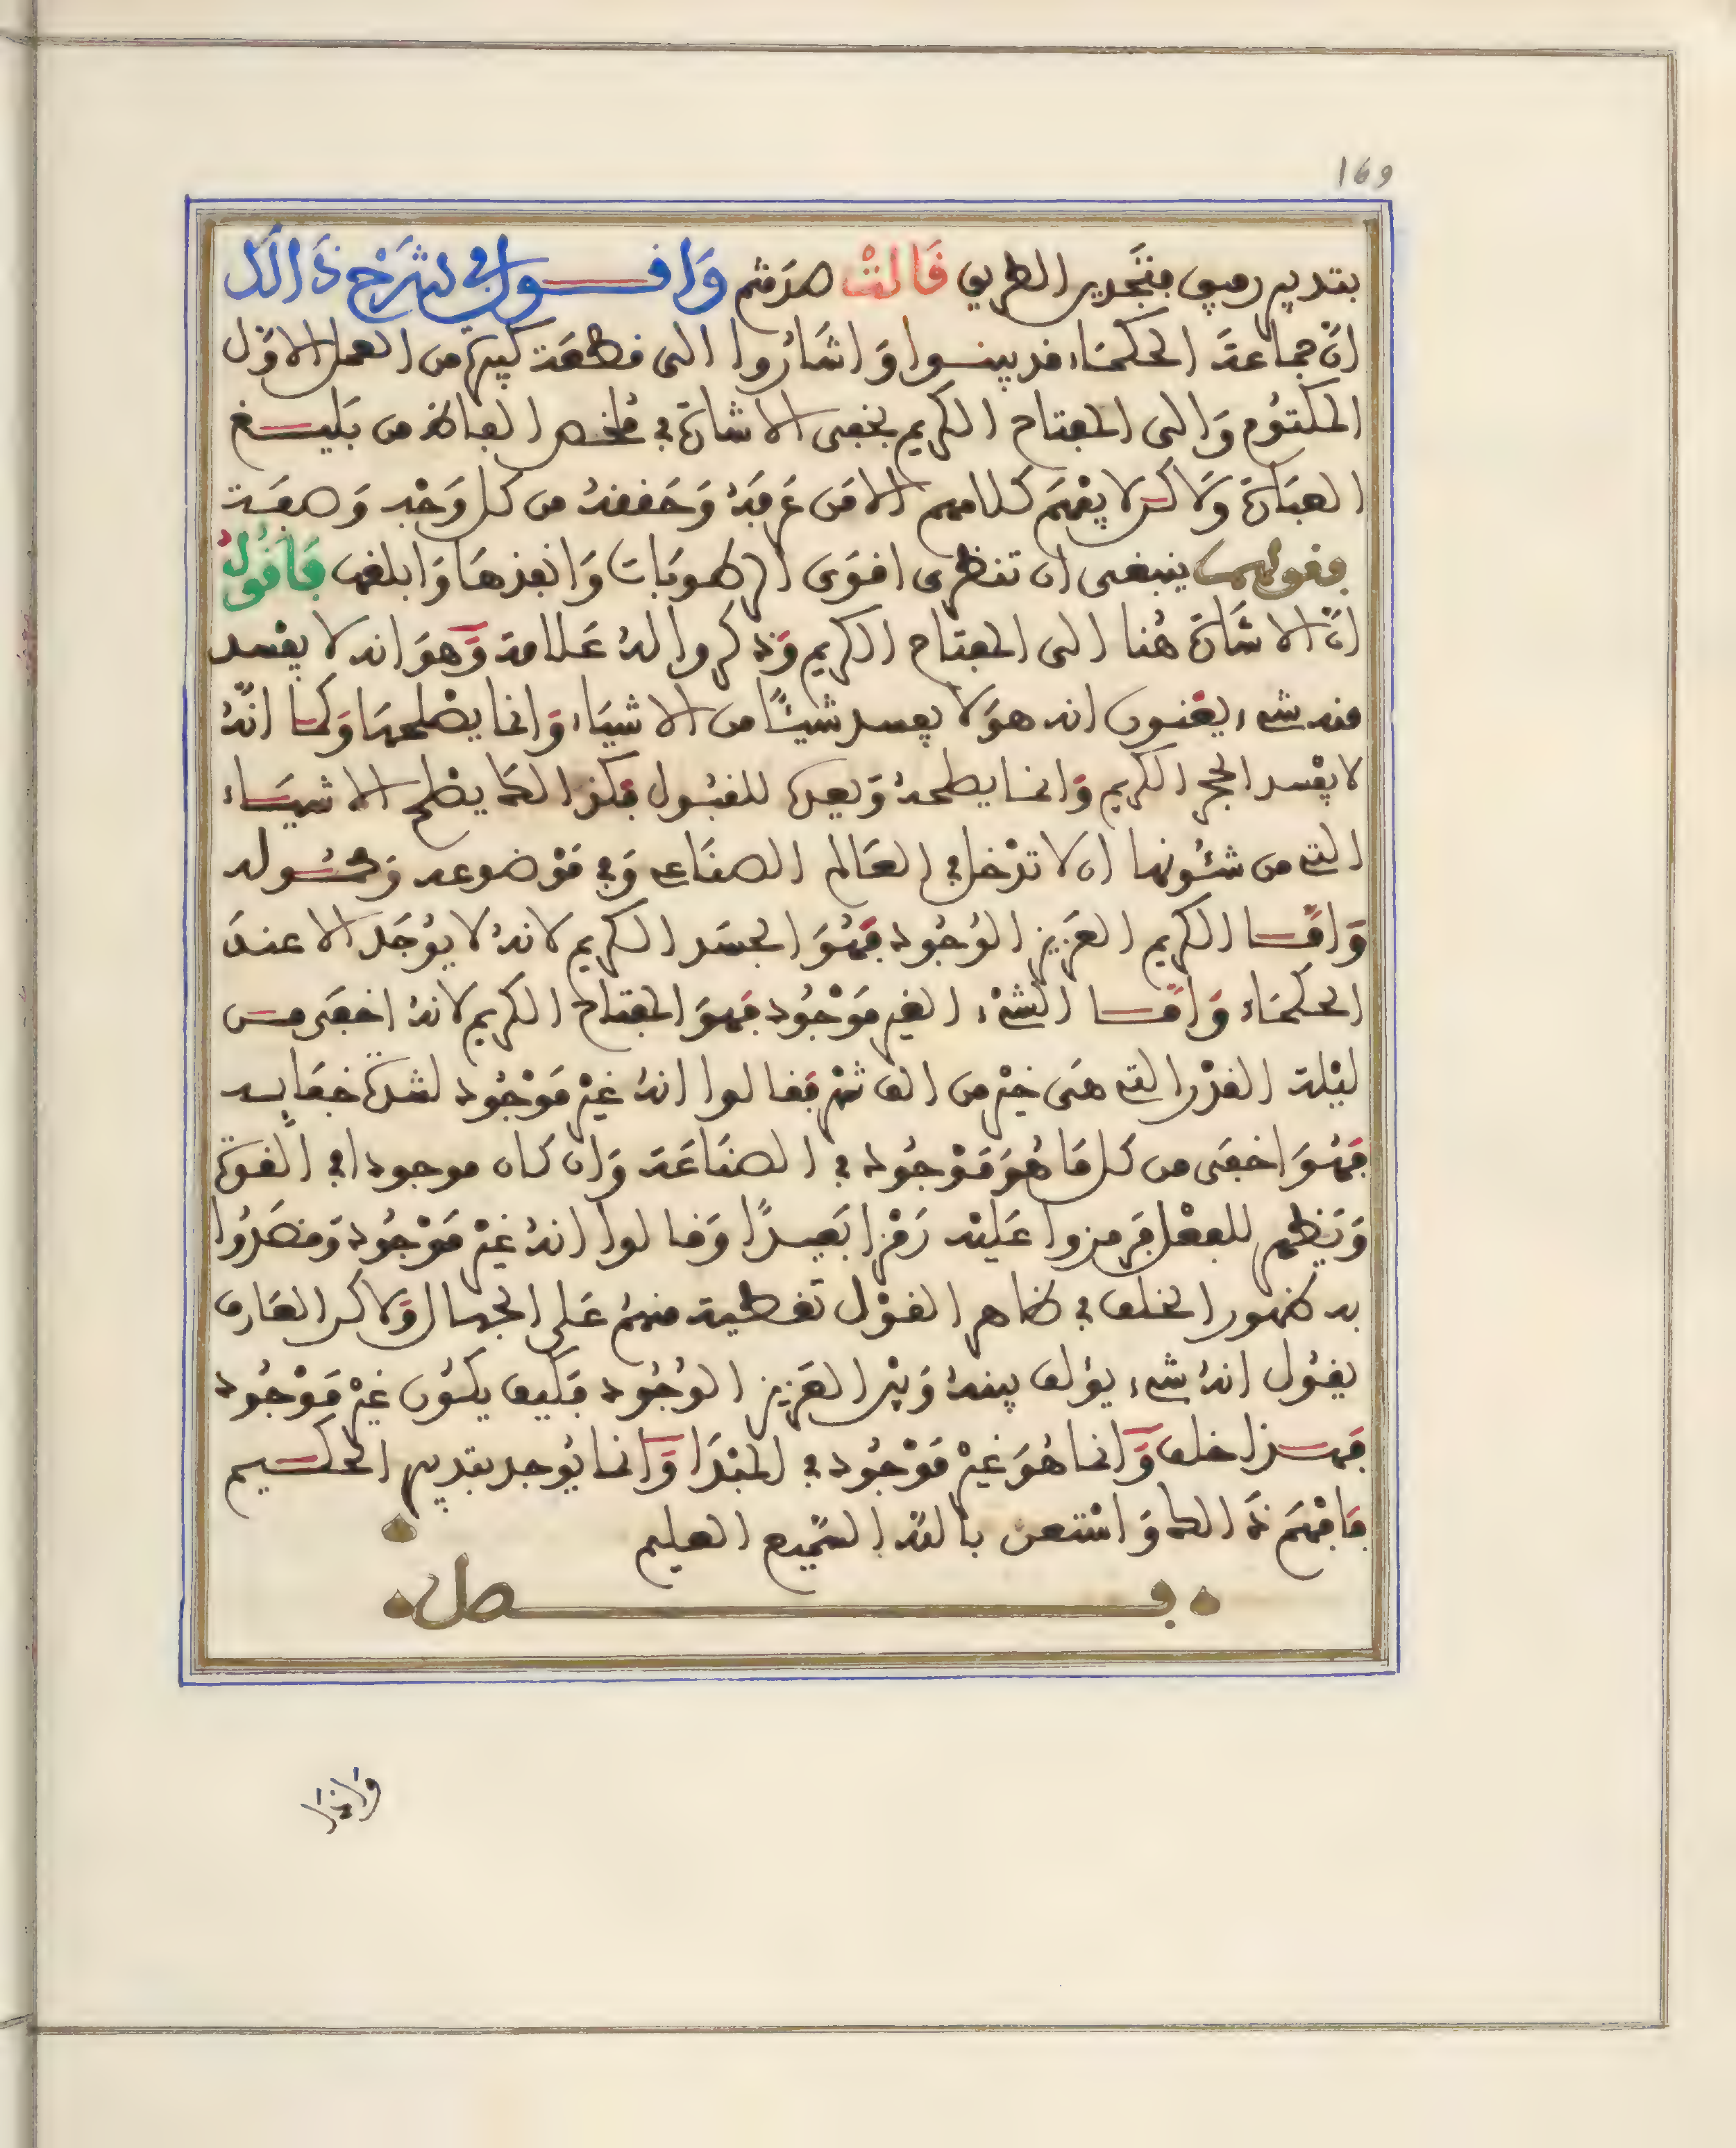 169
بتدبير رفيق فتجدين الطريق قَالَتْ صدَقتم وَاقـــول في شَرْحِ ذَالَك
انّ جماعةَ الحكمَاء قد بينـوا وَاشَارُوا الى قطعَة كبيرة من العمل الاوّل
المكتوُم وَالى المفتاح الكريم بخفى الاشارَة في مُلخص الفاظ من بَليـغ
العبَارَة وَلَاكن لا يفْهَم كلامهم الا مَن عَرفَهُ وَحَققهُ من كل وَجْه وَصفَـة
فقولهمـا ينبغى ان تنظرى اقوَى الرطوبَات وَانفذهَا وَابلغها فَاَقولُ
انّ الاشَارَة هُنا الى المفتاح الكريم وَذكروا لهُ عَلامة وَّهوَ انه لا يفْسد
منه شىء يعْنون انه هوَ لا يفسد شيئًا من الاشيَاء وَانما يصْلحهَا وَكمـا انّهُ
لا يفْسد الحجر الكريم وَانمـا يصلحهُ وَيعده للقبُـول فكذالك يصْلح الاشيَـاء
التى من شئُونها ان لا تدْخل في العَالم الصنَاعى وَفي مَوْضوعه وَمحْمُـوله
وَامّـا الكريم العَزيز الوُجُود فَهُوَ الجسَد الكريم لانهُ لا يوُجَد الا عندَ
الحكمَاء وَامّـا الشىْء الغير مَوْجُود فَهوَ المفتاح الكريم لانهُ اخفَى مـن
ليْلة القدْر التى هىَ خيْر من الف شهْر فَقالوا انهُ غيْر مَوْجُود لشدّة خفَايـه
فَهُوَ اخفَى من كل مَا هُوَ مَوْجُود في الصنَاعَة وَان كان موجودا في القوة
وَيَظهر للفعْل فَرمزوا عَليْه رَمْزا بَعيـدًا وَقالوا انهُ غيْر مَوْجُود وَقصَدُوا
به ظهور الخلف في ظاهر القوْل تغطية منهُم عَلى الجهال وَلاكن العَارف
يقوُل انهُ شىء يؤلف بينهُ وَبيْن العَزيز الوُجُود فَكيف يكوُن غيْر مَوْجُود
فَهـذا خلف وَّانما هُوَ غيْر مَوْجُود في المبْدَا وَّانما يُوجد بتدبير الحكـيم
فَافْهَم ذَالك وَاسْتعن باللّه السّميع العليم
فــــــصل
وَاخذا